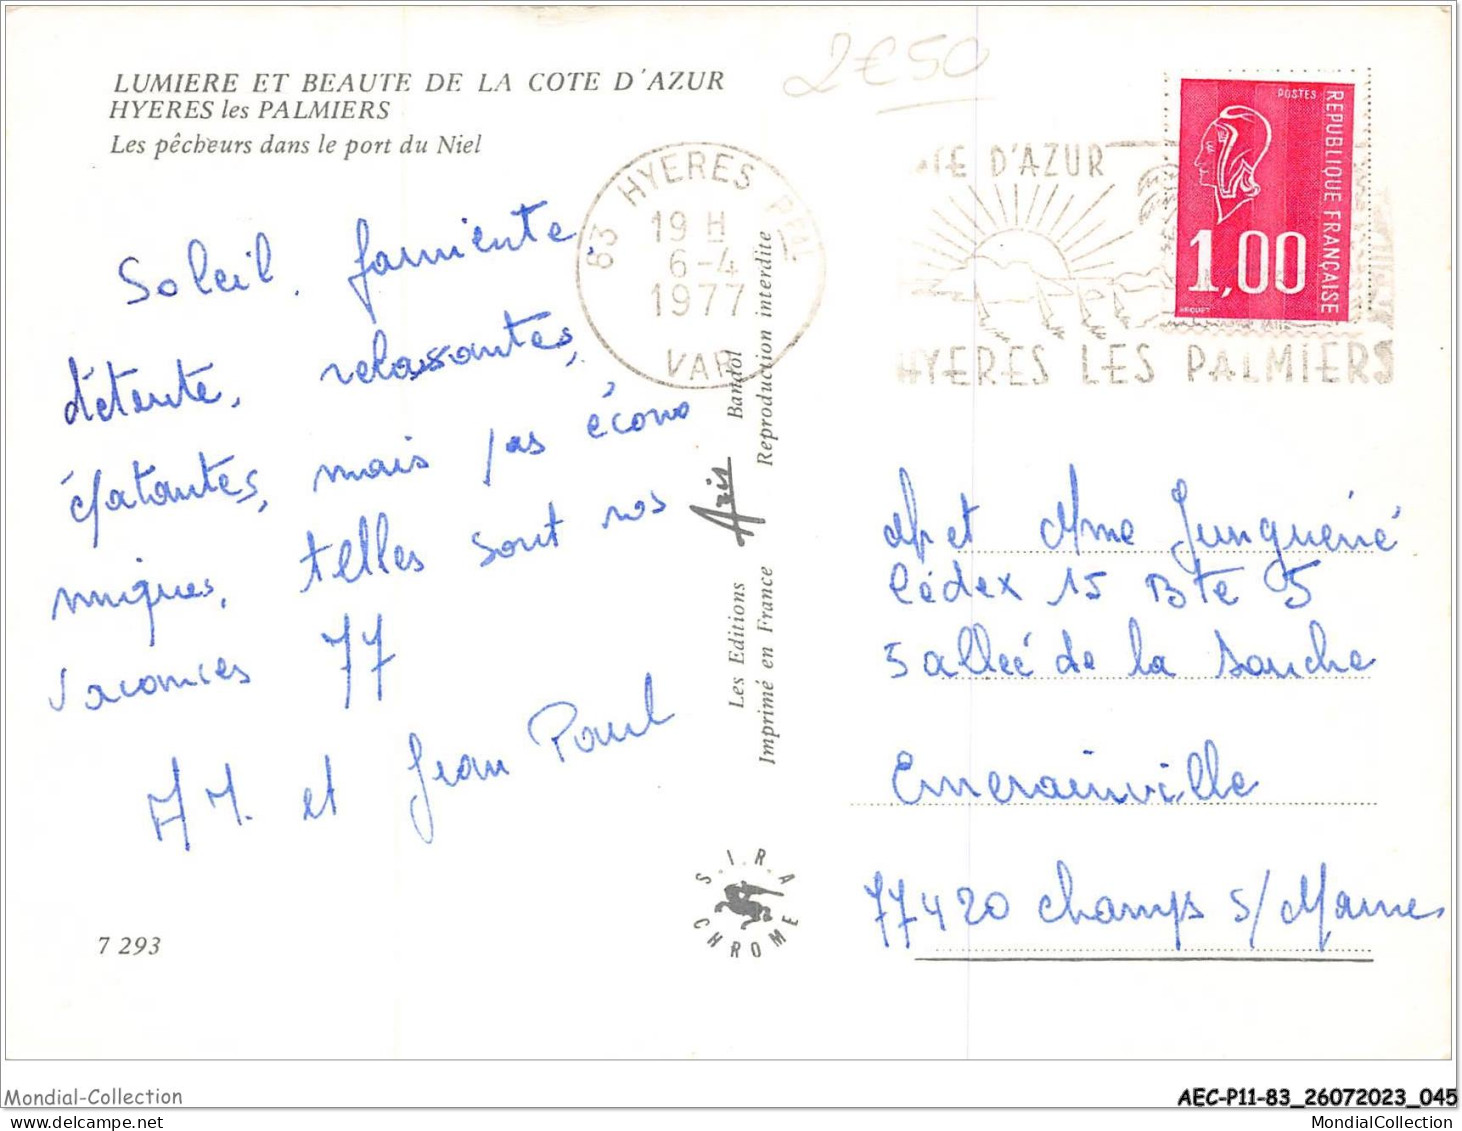 2€50
LUMIERE ET BEAUTE DE LA COTE D'AZUR
HYERES les PALMIERS
Les pêcheurs dans le port du Niel
Soleil, farniente,
détente, relaxantes,
épatantes, mais pas écono
miques, telles sont nos
vacances 77
et Jean Paul
7 293
83 HYERES PPAL
19 H
6-4
1977
VAR
Les Editions Aris Bandol
Imprimé en France Reproduction interdite
S.I.R.A
CHROME
TE D'AZUR
HYERES LES PALMIERS
POSTES
REPUBLIQUE FRANÇAISE
1,00
BEQUET
et Mme Junquerié
Cédex 15 Bte 5
5 allée de la Souche
Emerainville
77420 Champs s/Marne
Mondial-Collection
AEC-P11-83_26072023_045
MondialCollection